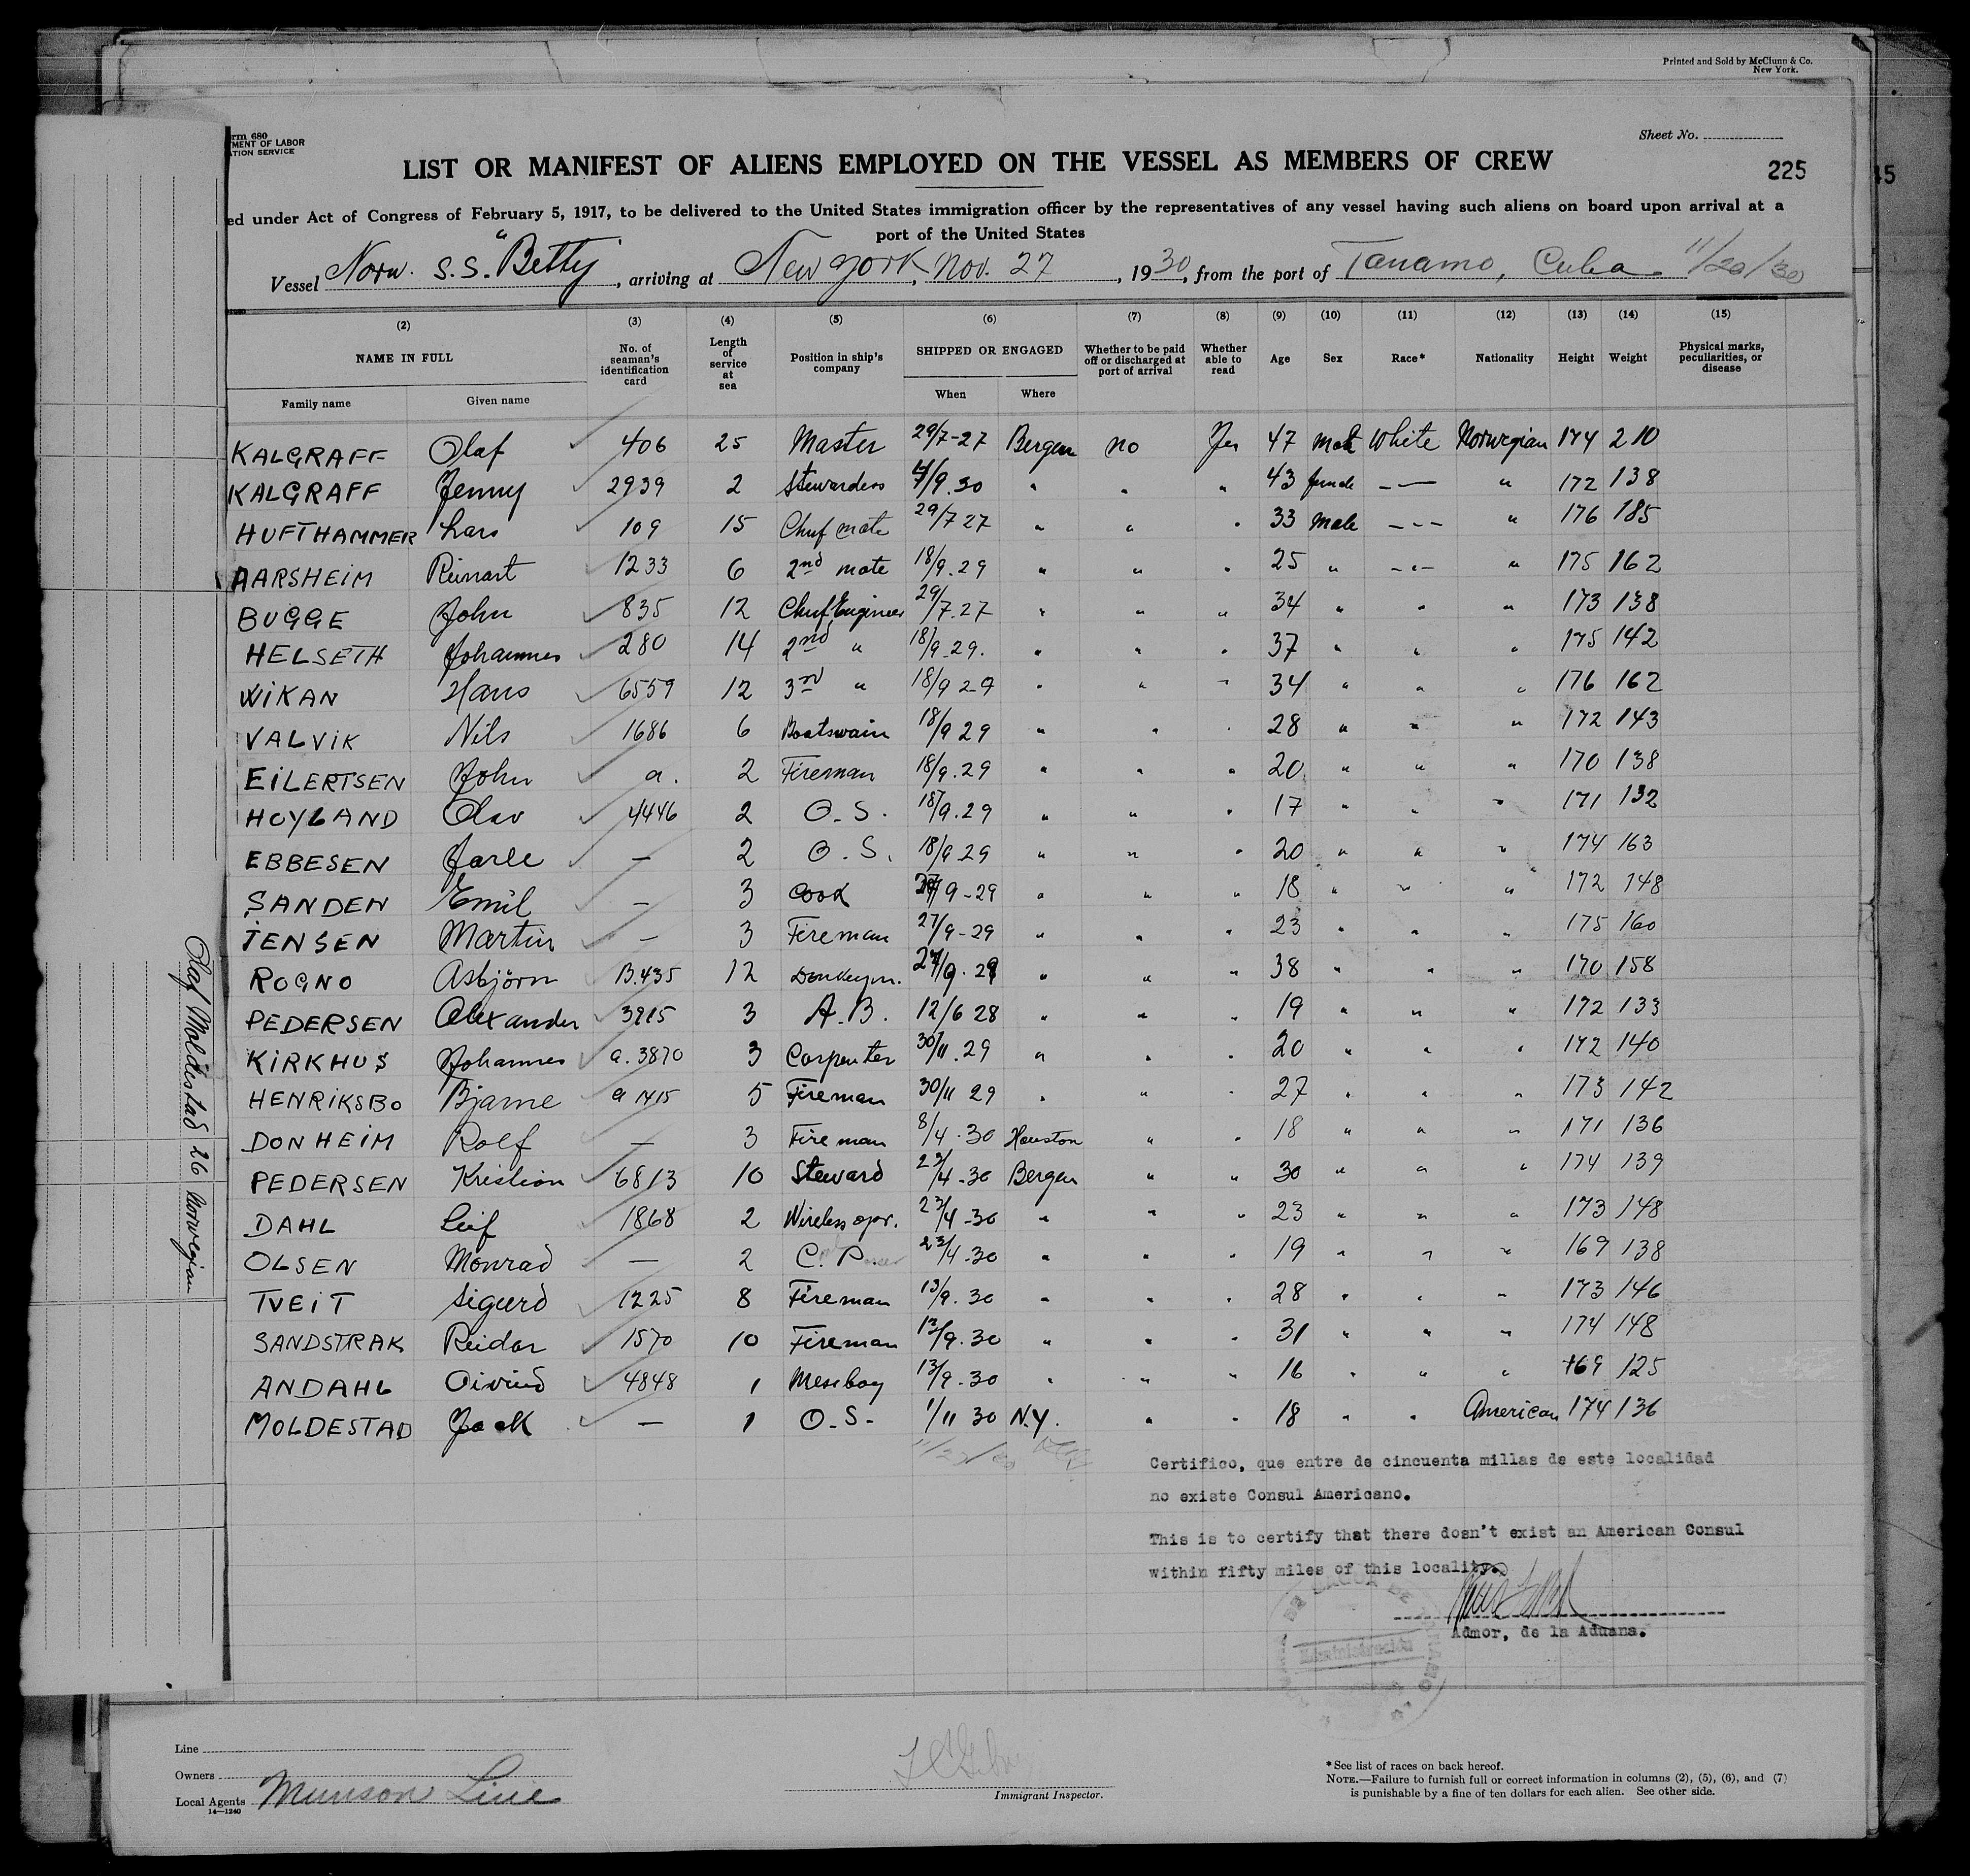 Printed and Sold by McClunn & Co.
New York.
rm 680
MENT OF LABOR
ATION SERVICE
Sheet No.
LIST OR MANIFEST OF ALIENS EMPLOYED ON THE VESSEL AS MEMBERS OF CREW
225
45
ed under Act of Congress of February 5, 1917, to be delivered to the United States immigration officer by the representatives of any vessel having such aliens on board upon arrival at a
port of the United States
Vessel Norw. S.S. "Betty", arriving at New York, Nov. 27, 1930, from the port of Tanamo, Cuba. 11/20/30
(2) (3) (4) (5) (6) (7) (8) (9) (10) (11) (12) (13) (14) (15)
NAME IN FULL No. of seaman's identification card Length of service at sea Position in ship's company SHIPPED OR ENGAGED Whether to be paid off or discharged at port of arrival Whether able to read Age Sex Race* Nationality Height Weight Physical marks, peculiarities, or disease
Family name Given name When Where
KALGRAFF Olaf 406 25 Master 29/7-27 Bergen no Yes 47 male White Norwegian 174 210
KALGRAFF Jenny 2939 2 Stewardess 4/9.30 " " " 43 female -- " 172 138
HUFTHAMMER Lars 109 15 Chief mate 29/7 27 " " " 33 male --- " 176 185
AARSHEIM Reinart 1233 6 2nd mate 18/9.29 " " " 25 " --- " 175 162
BUGGE John 835 12 Chief Engineer 29/7.27 " " " 34 " " " 173 138
HELSETH Johannes 280 14 2nd " 18/9.29. " " " 37 " " " 175 142
WIKAN Hans 6559 12 3rd " 18/9 29 " " " 34 " " " 176 162
VALVIK Nils 1686 6 Boatswain 18/9 29 " " " 28 " " " 172 143
EILERTSEN John a. 2 Fireman 18/9.29 " " " 20 " " " 170 138
HOYLAND Olav 4446 2 O.S. 18/9.29 " " " 17 " " " 171 132
EBBESEN Jarle — 2 O.S. 18/9 29 " " " 20 " " " 174 163
SANDEN Emil — 3 Cook 27/9-29 " " " 18 " " " 172 148
JENSEN Martin — 3 Fireman 27/9-29 " " " 23 " " " 175 160
ROGNO Asbjörn B.435 12 Donkeym. 27/9.29 " " " 38 " " " 170 158
PEDERSEN Alexander 3915 3 A.B. 12/6 28 " " " 19 " " " 172 133
KIRKHUS Johannes a.3870 3 Carpenter 30/11.29 " " " 20 " " " 172 140
HENRIKSBO Bjarne a 1415 5 Fireman 30/11 29 " " " 27 " " " 173 142
DONHEIM Rolf — 3 Fireman 8/4.30 Houston " " 18 " " " 171 136
PEDERSEN Kristian 6813 10 Steward 23/4-30 Bergen " " 30 " " " 174 139
DAHL Leif 1868 2 Wireless opr. 23/4-30 " " " 23 " " " 173 148
OLSEN Monrad — 2 C. P 23/4-30 " " " 19 " " " 169 138
TVEIT Sigurd 1225 8 Fireman 13/9.30 " " " 28 " " " 173 146
SANDSTRAK Reidar 1570 10 Fireman 13/9.30 " " " 31 " " " 174 148
ANDAHL Oivind 4848 1 Messboy 13/9.30 " " " 16 " " " 169 125
MOLDESTAD Jack — 1 O.S. 1/11 30 N.Y. " " 18 " " American 174 136
Olaf Moldestad 26 Norwegian
Certifico, que entre de cincuenta millas de este localidad
no existe Consul Americano.
This is to certify that there dosn't exist an American Consul
within fifty miles of this locality.
Admor, de la Aduana.
Administración
Line
Owners
Local Agents Munson Line
14—1240
Immigrant Inspector.
*See list of races on back hereof.
NOTE.—Failure to furnish full or correct information in columns (2), (5), (6), and (7)
is punishable by a fine of ten dollars for each alien. See other side.